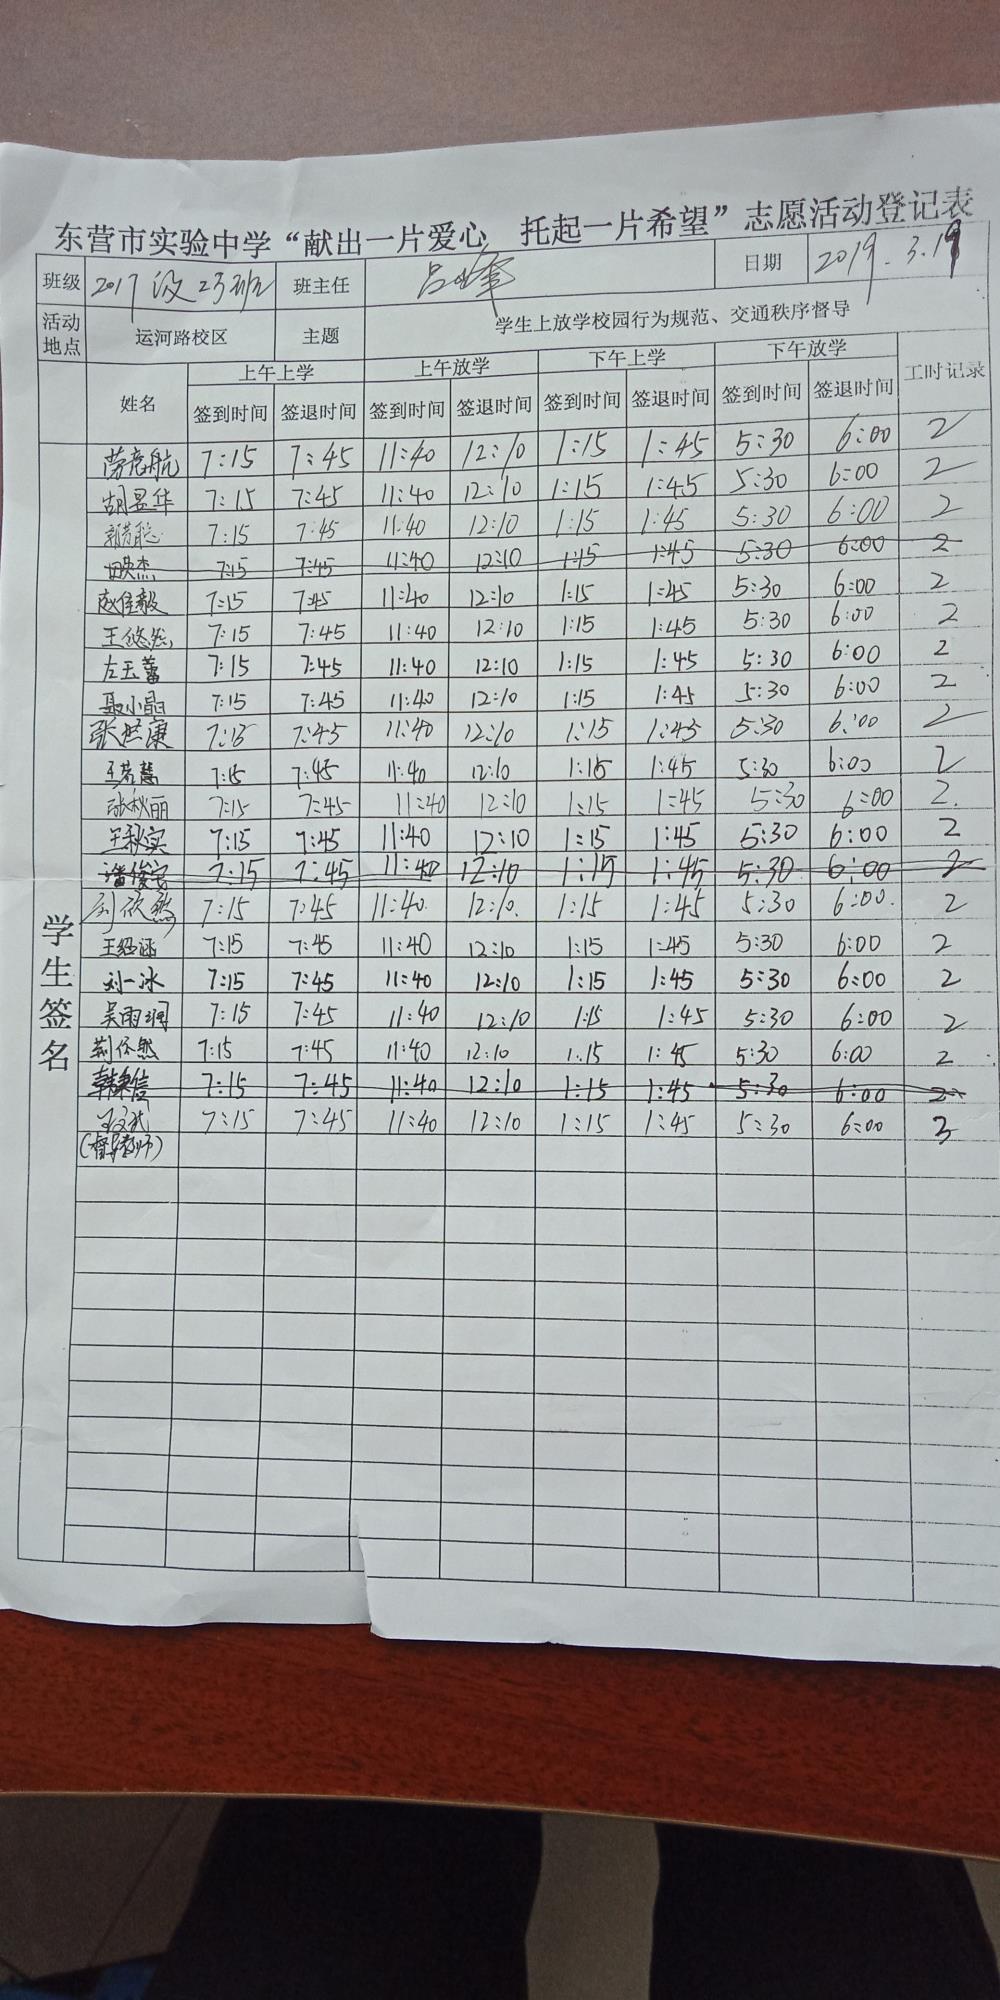 东营市实验中学“献出一片爱心 托起一片希望”志愿活动登记表
班级 2017级23班 班主任 日期 2019.3.19
活动地点 运河路校区 主题 学生上放学校园行为规范、交通秩序督导
上午上学 上午放学 下午上学 下午放学 工时记录
姓名 签到时间 签退时间 签到时间 签退时间 签到时间 签退时间 签到时间 签退时间
学生签名
劳意航 7:15 7:45 11:40 12:10 1:15 1:45 5:30 6:00 2
胡昱华 7:15 7:45 11:40 12:10 1:15 1:45 5:30 6:00 2
7:15 7:45 11:40 12:10 1:15 1:45 5:30 6:00 2
田映杰 7:15 7:45 11:40 12:10 1:15 1:45 5:30 6:00 2
赵佳毅 7:15 7:45 11:40 12:10 1:15 1:45 5:30 6:00 2
王悠然 7:15 7:45 11:40 12:10 1:15 1:45 5:30 6:00 2
左玉蕾 7:15 7:45 11:40 12:10 1:15 1:45 5:30 6:00 2
聂小晶 7:15 7:45 11:40 12:10 1:15 1:45 5:30 6:00 2
张照康 7:15 7:45 11:40 12:10 1:15 1:45 5:30 6:00 2
王若慧 7:15 7:45 11:40 12:10 1:15 1:45 5:30 6:00 2
张秋丽 7:15 7:45 11:40 12:10 1:15 1:45 5:30 6:00 2.
王秋实 7:15 7:45 11:40 12:10 1:15 1:45 5:30 6:00 2
潘俊宇 7:15 7:45 11:40 12:10 1:15 1:45 5:30 6:00 2
刘欣然 7:15 7:45 11:40. 12:10. 1:15 1:45 5:30 6:00. 2
王绍涵 7:15 7:45 11:40 12:10 1:15 1:45 5:30 6:00 2
刘一冰 7:15 7:45 11:40 12:10 1:15 1:45 5:30 6:00 2
吴雨润 7:15 7:45 11:40 12:10 1:15 1:45 5:30 6:00 2
荆依然 7:15 7:45 11:40 12:10 1:15 1:45 5:30 6:00 2
韩秉信 7:15 7:45 11:40 12:10 1:15 1:45 5:30 6:00 2
王文武 7:15 7:45 11:40 12:10 1:15 1:45 5:30 6:00 3
(督导教师)